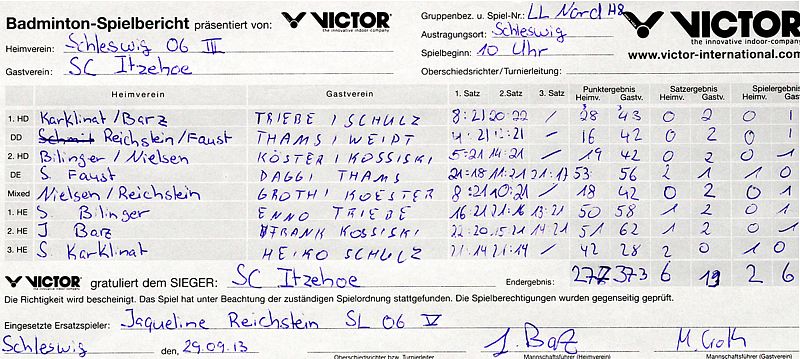 Badminton-Spielbericht präsentiert von: VICTOR the innovative indoor-company Gruppenbez. u. Spiel-Nr.: LL Nord H8 VICTOR the innovative indoor-company
Heimverein: Schleswig 06 III Austragungsort: Schleswig
Gastverein: SC Itzehoe Spielbeginn: 10 Uhr www.victor-international.com
Oberschiedsrichter/Turnierleitung:
Heimverein Gastverein 1. Satz 2. Satz 3. Satz Punktergebn. Heimv. Gastv. Satzergebn. Heimv. Gastv. Spielergebn. Heimv. Gastv.
1. HD Karklinat/Barz TRIEBE / SCHULZ 8:21 20:22 / 28 43 0 2 0 1
DD Reichstein/Faust THAMS / WEIDT 4:21 12:21 / 16 42 0 2 0 1
2. HD Bilinger / Nielsen KÖSTER / KOSSISKI 5:21 14:21 / 19 42 0 2 0 1
DE S. Faust DAGGI THAMS 21:18 11:21 21:17 53 56 2 1 1 0
Mixed Nielsen/Reichstein GROTH / KOESTER 8:21 10:21 / 18 42 0 2 0 1
1. HE S. Bilinger ENNO TRIEBE 16:21 21:16 13:21 50 58 1 2 0 1
2. HE J Barz FRANK KOSSISKI 22:20 15:21 14:21 51 62 1 2 0 1
3. HE S Karklinat HEIKO SCHULZ 21:14 21:14 / 42 28 2 0 1 0
VICTOR gratuliert dem SIEGER: SC Itzehoe Endergebnis: 277 373 6 13 2 6
Die Richtigkeit wird bescheinigt. Das Spiel hat unter Beachtung der zuständigen Spielordnung stattgefunden. Die Spielberechtigungen wurden gegenseitig geprüft.
Eingesetzte Ersatzspieler: Jaqueline Reichstein SL 06 V
Schleswig den, 29.09.13 J. Barz M. Groth
Oberschiedsrichter bzw. Turnierleiter Mannschaftsführer (Heimverein) Mannschaftsführer (Gastverein)